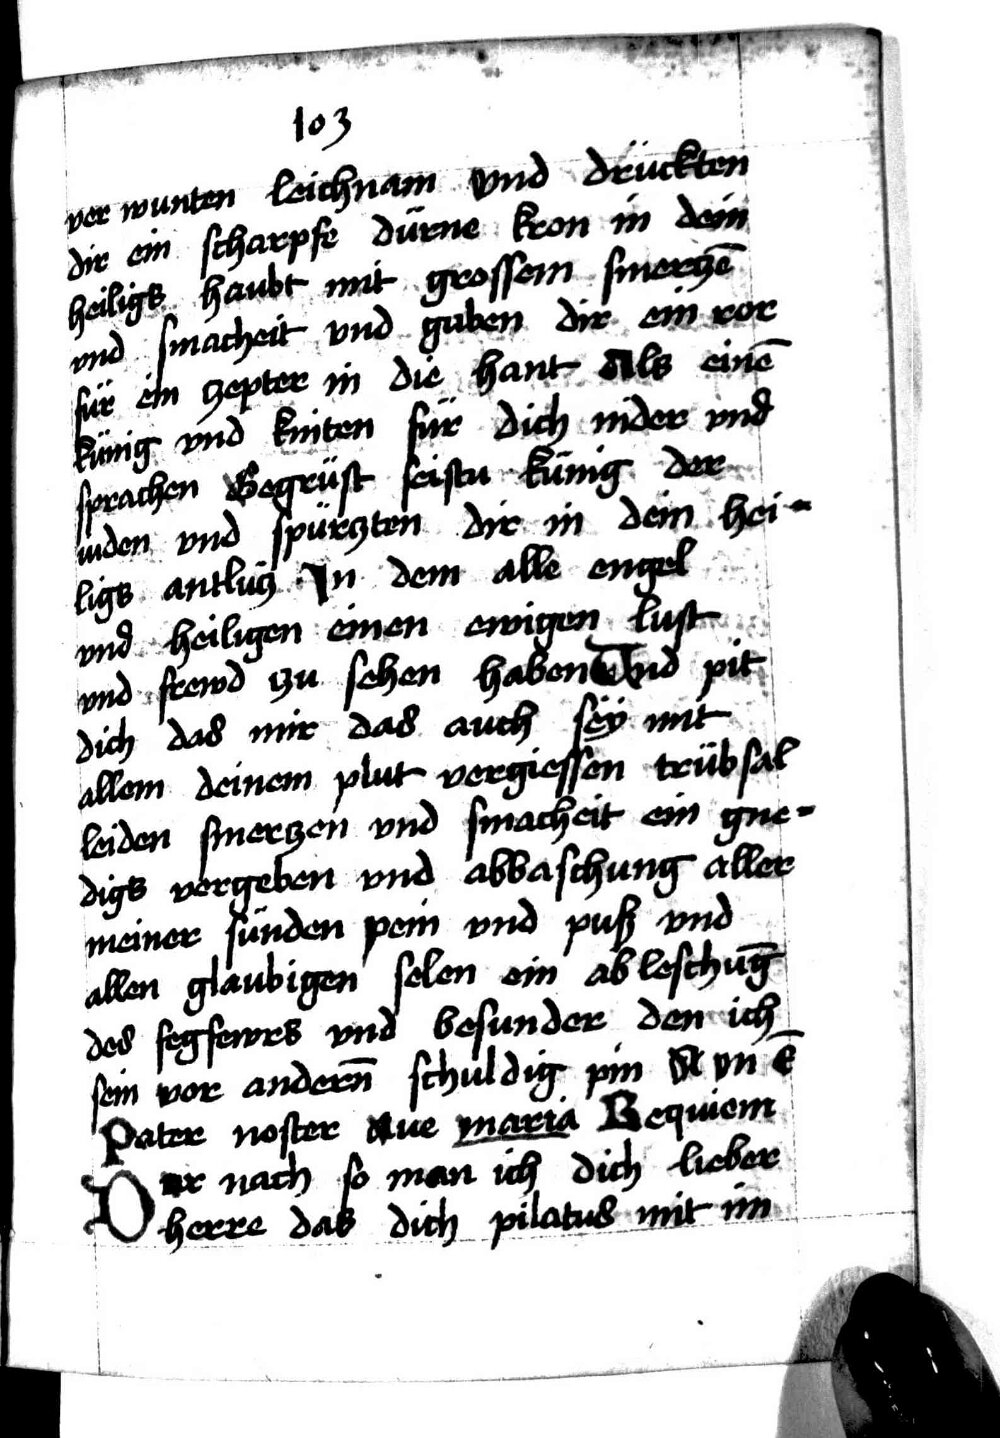 103
ver wunten leichnam Vnd drückten
dir ein scharpfe dürne kron in dein
heiligs haubt mit grossem smerczē
vnd smacheit vnd gaben dir ein ror
für ein zepter in die hant Als einē
künig vnd kniten für dich nider vnd
sprachen Gegrüst seistu künig der
iuden vnd spürczten dir in dein hei-
ligs antlücz In dem alle engel
vnd heiligen einen ewigen lust
vnd frewd czu sehen haben Vnd pit
dich das mir das auch sey mit
allem deinem plut vergiessen trübsal
leiden smerczen vnd smacheit ein gne-
digs vergeben vnd abbaschung aller
meiner sünden pein vnd puß vnd
allen glaubigen selen ein ableschūg
des fegfewrs vnd besunder den ich
sein vor anderñ schuldig pin
Pater noster Aue maria Requiem
Dar nach so man ich dich lieber
herre das dich pilatus mit im